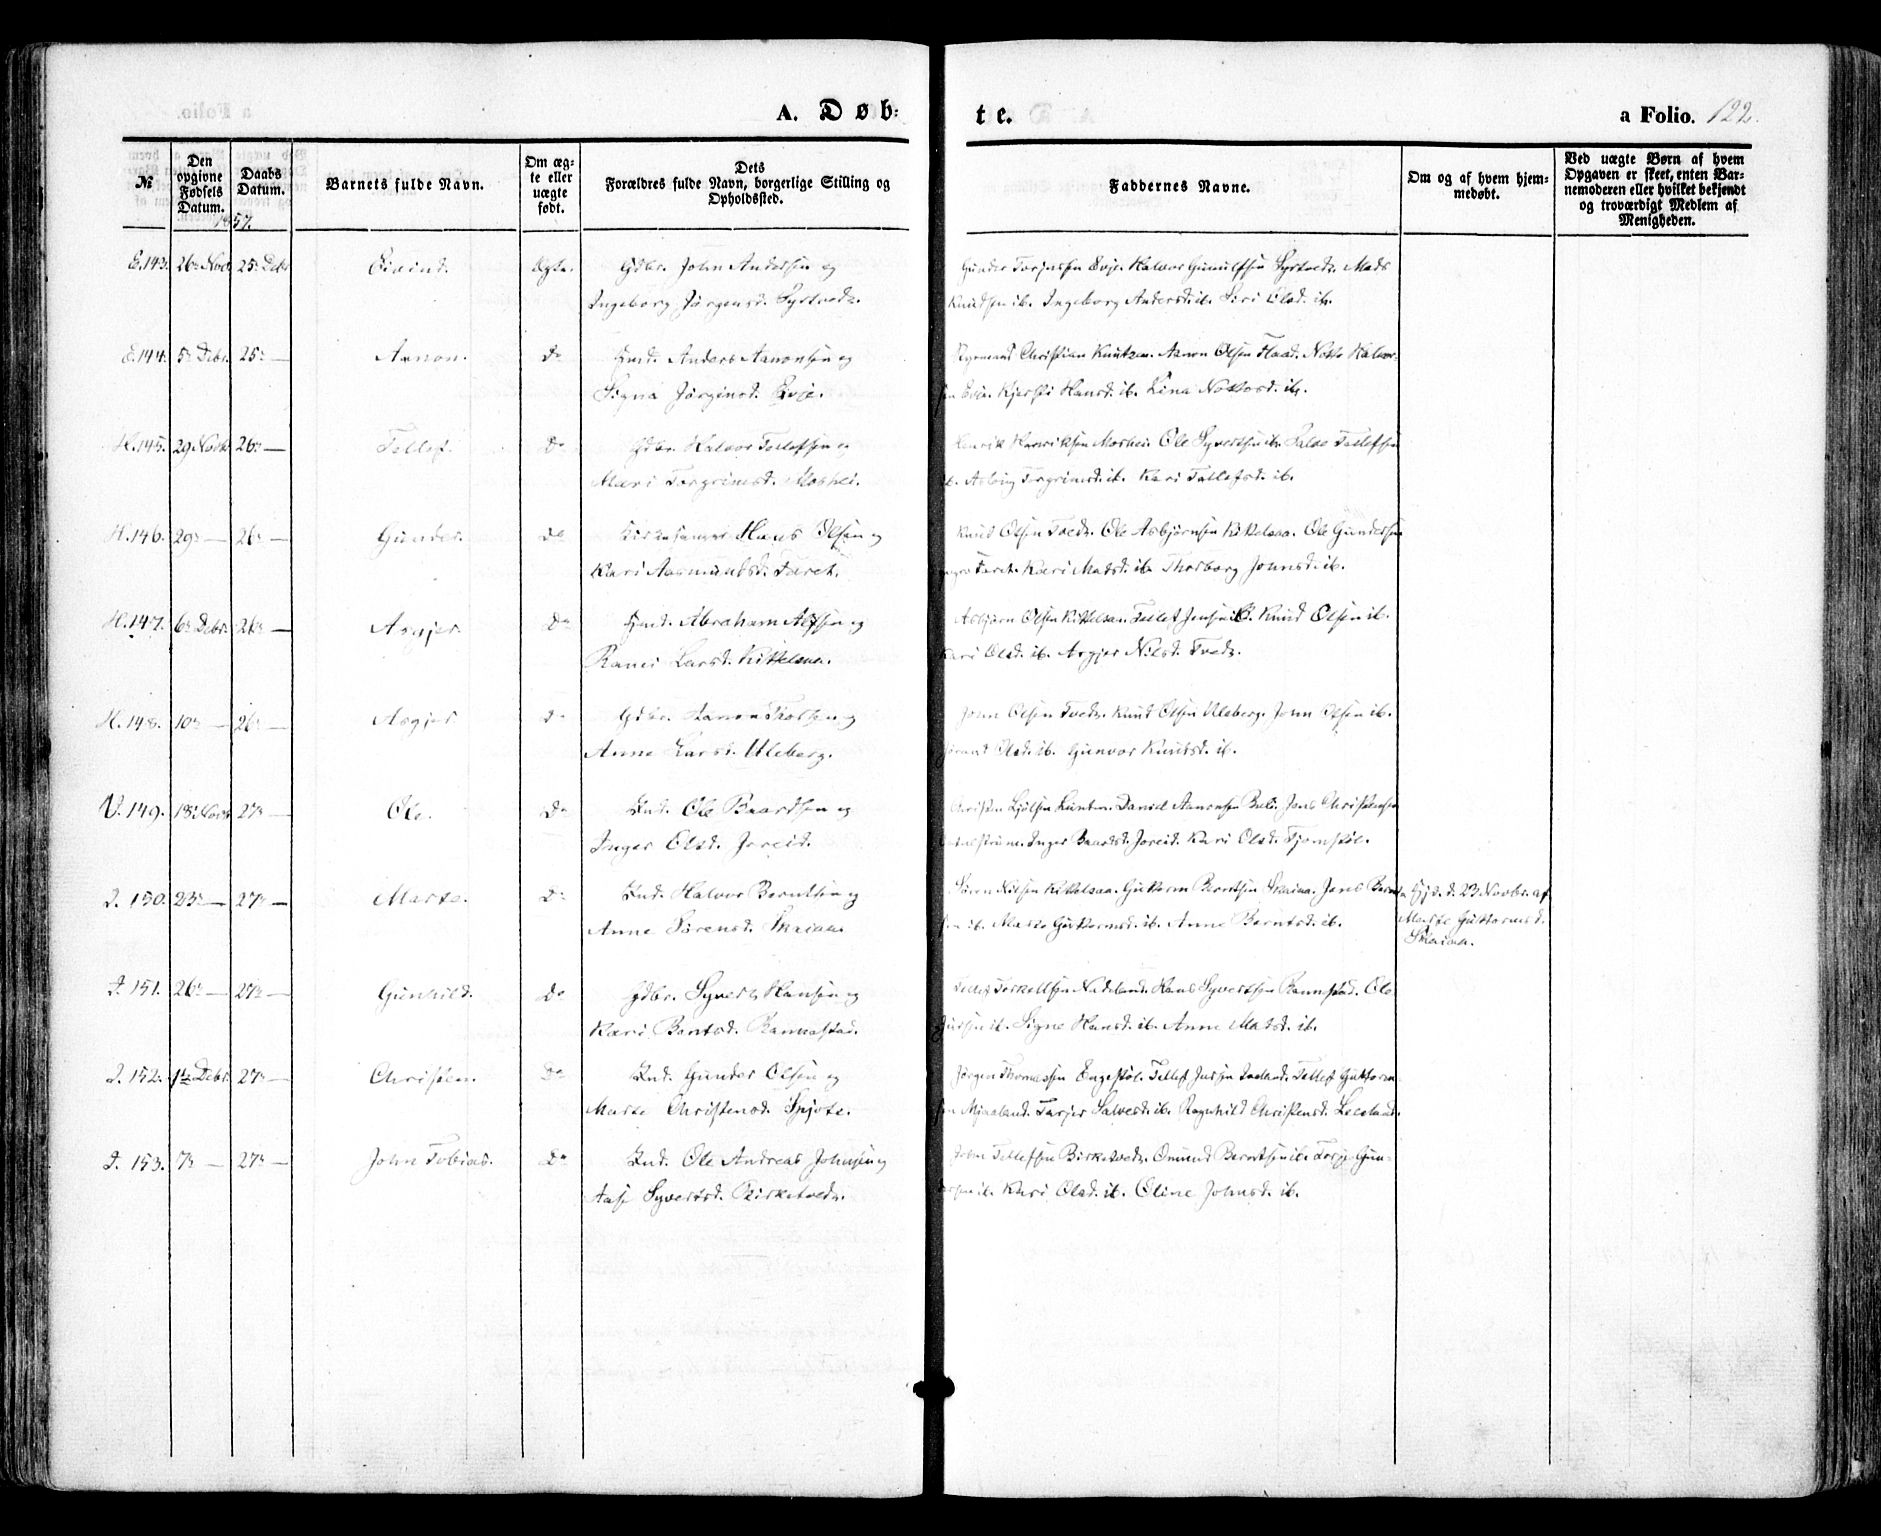 A. Døb:
te.
a Folio. 122.
№
Den opgivne Fødsels Datum.
Daabs Datum.
Barnets fulde Navn.
Om ægte eller uægte født.
Dets Forældres fulde Navn, borgerlige Stilling og Opholdssted.
Faddernes Navne.
Om og af hvem hjemmedøbt.
Ved uægte Børn af hvem Opgaven er skeet, enten Barnemoderen eller hvilket bekjendt og troværdigt Medlem af Menigheden.
1857.
E. 143. 26 Novb. 25 Debr. Eivind. Ægte. Gdbr. John Andersen og
Ingeborg Jørgensd. Syrtvedt.
Gunder Torjussen Evje. Halvor Gunulfsen Syrtvedt. Mads
Knudsen ib. Ingeborg Andersd. ib. Siri Olsd. ib.
E. 144. 5 Debr. 25 — Aanon. Do Hmd. Anders Aanonsen og
Signa Jørgensd. Evje.
Christian Knutzen. Aanon Olsen Flaad. Notto Halvor-
sen Evje. Kjersti Hansd. ib. Lina Nottosd. ib.
H. 145. 29 Novb. 26 — Tellef. Do Gdbr. Halvor Tellefsen og
Mari Torgrimsd. Moshei.
Henrik Henriksen Moshei. Ole Syvertsen ib. Salve Tellefsen
ib. Aslaug Torgrimsd. ib. Kari Tellefsd. ib.
H. 146. 29 — 26 — Gunder. Do Kirkesanger Hans Olsen og
Kari Aasmundsd. Faret.
Knud Olsen Tvedt. Ole Asbjørnsen Kittelsaa. Ole Gundersen
yngre Faret. Kari Matsd. ib. Thorborg Johnsd. ib.
H. 147. 6 Debr. 26 — Asgjer. Do Hmd. Abraham Alfsen og
Ranei Larsd. Kittelsaa.
Asbjørn Olsen Kittelsaa. Tellef Jensen ib. Knud Olsen ib.
Kari Olsd. ib. Asgjer Nilsd. Tvedt.
H. 148. 10 — 26 — Asgjer Do Gdbr. Aanon Tharsen og
Anne Larsd. Uleberg.
John Olsen Tvedt. Knud Olsen Uleberg. John Olsen ib.
Olsd. ib. Gunvor Knutsd. ib.
V. 149. 18 Novb. 27 — Ole. Do Ind. Ole Baardsen og
Inger Olsd. Joreid.
Daniel Aanonsen Jens Christensen
Inger Baardsd. Joreid. Kari Olsd. Fjomstøl.
I. 150. 23 — 27 — Marte. Do Ind. Halvor Berntsen og
Anne Sørensd. Skaiaa.
Søren Nilsen Kittelsaa. Guttorm Berntsen Skaiaa. Jens Bernt-
sen ib. Marte Guttormsd. ib. Anne Berntsd. ib.
Hjd. d. 23 Novbr. af
Marte Guttormsd.
Skaiaa.
I. 151. 26 — 27 — Gunhild. Do Gdbr. Syvert Hansen og
Kari Berntsd. Rannestad.
Tellef Terkellsen Nadeland. Hans Syvertsen Rannestad. Ole
ib. Signe Hansd. ib. Anne Matsd. ib.
I. 152. 1ste Debr. 27 — Christen. Do Ind. Gunder Olsen og
Marte Christensd. Spjote.
Jørgen Thomassen Engestøl. Tellef Jussen Iveland. Tellef Guttorm-
sen Mjaaland. Tarjer Salvesd. ib. Ragnhild Christensd.
I. 153. 7 — 27 — John Tobias. Do Ind. Ole Andreas Johnsen og
Aase Syvertsd. Birketvedt.
John Tellefsen Birketvedt. Omund Berntsen ib. Terje Gun-
dersen ib. Kari Olsd. ib. Oline Johnsd. ib.